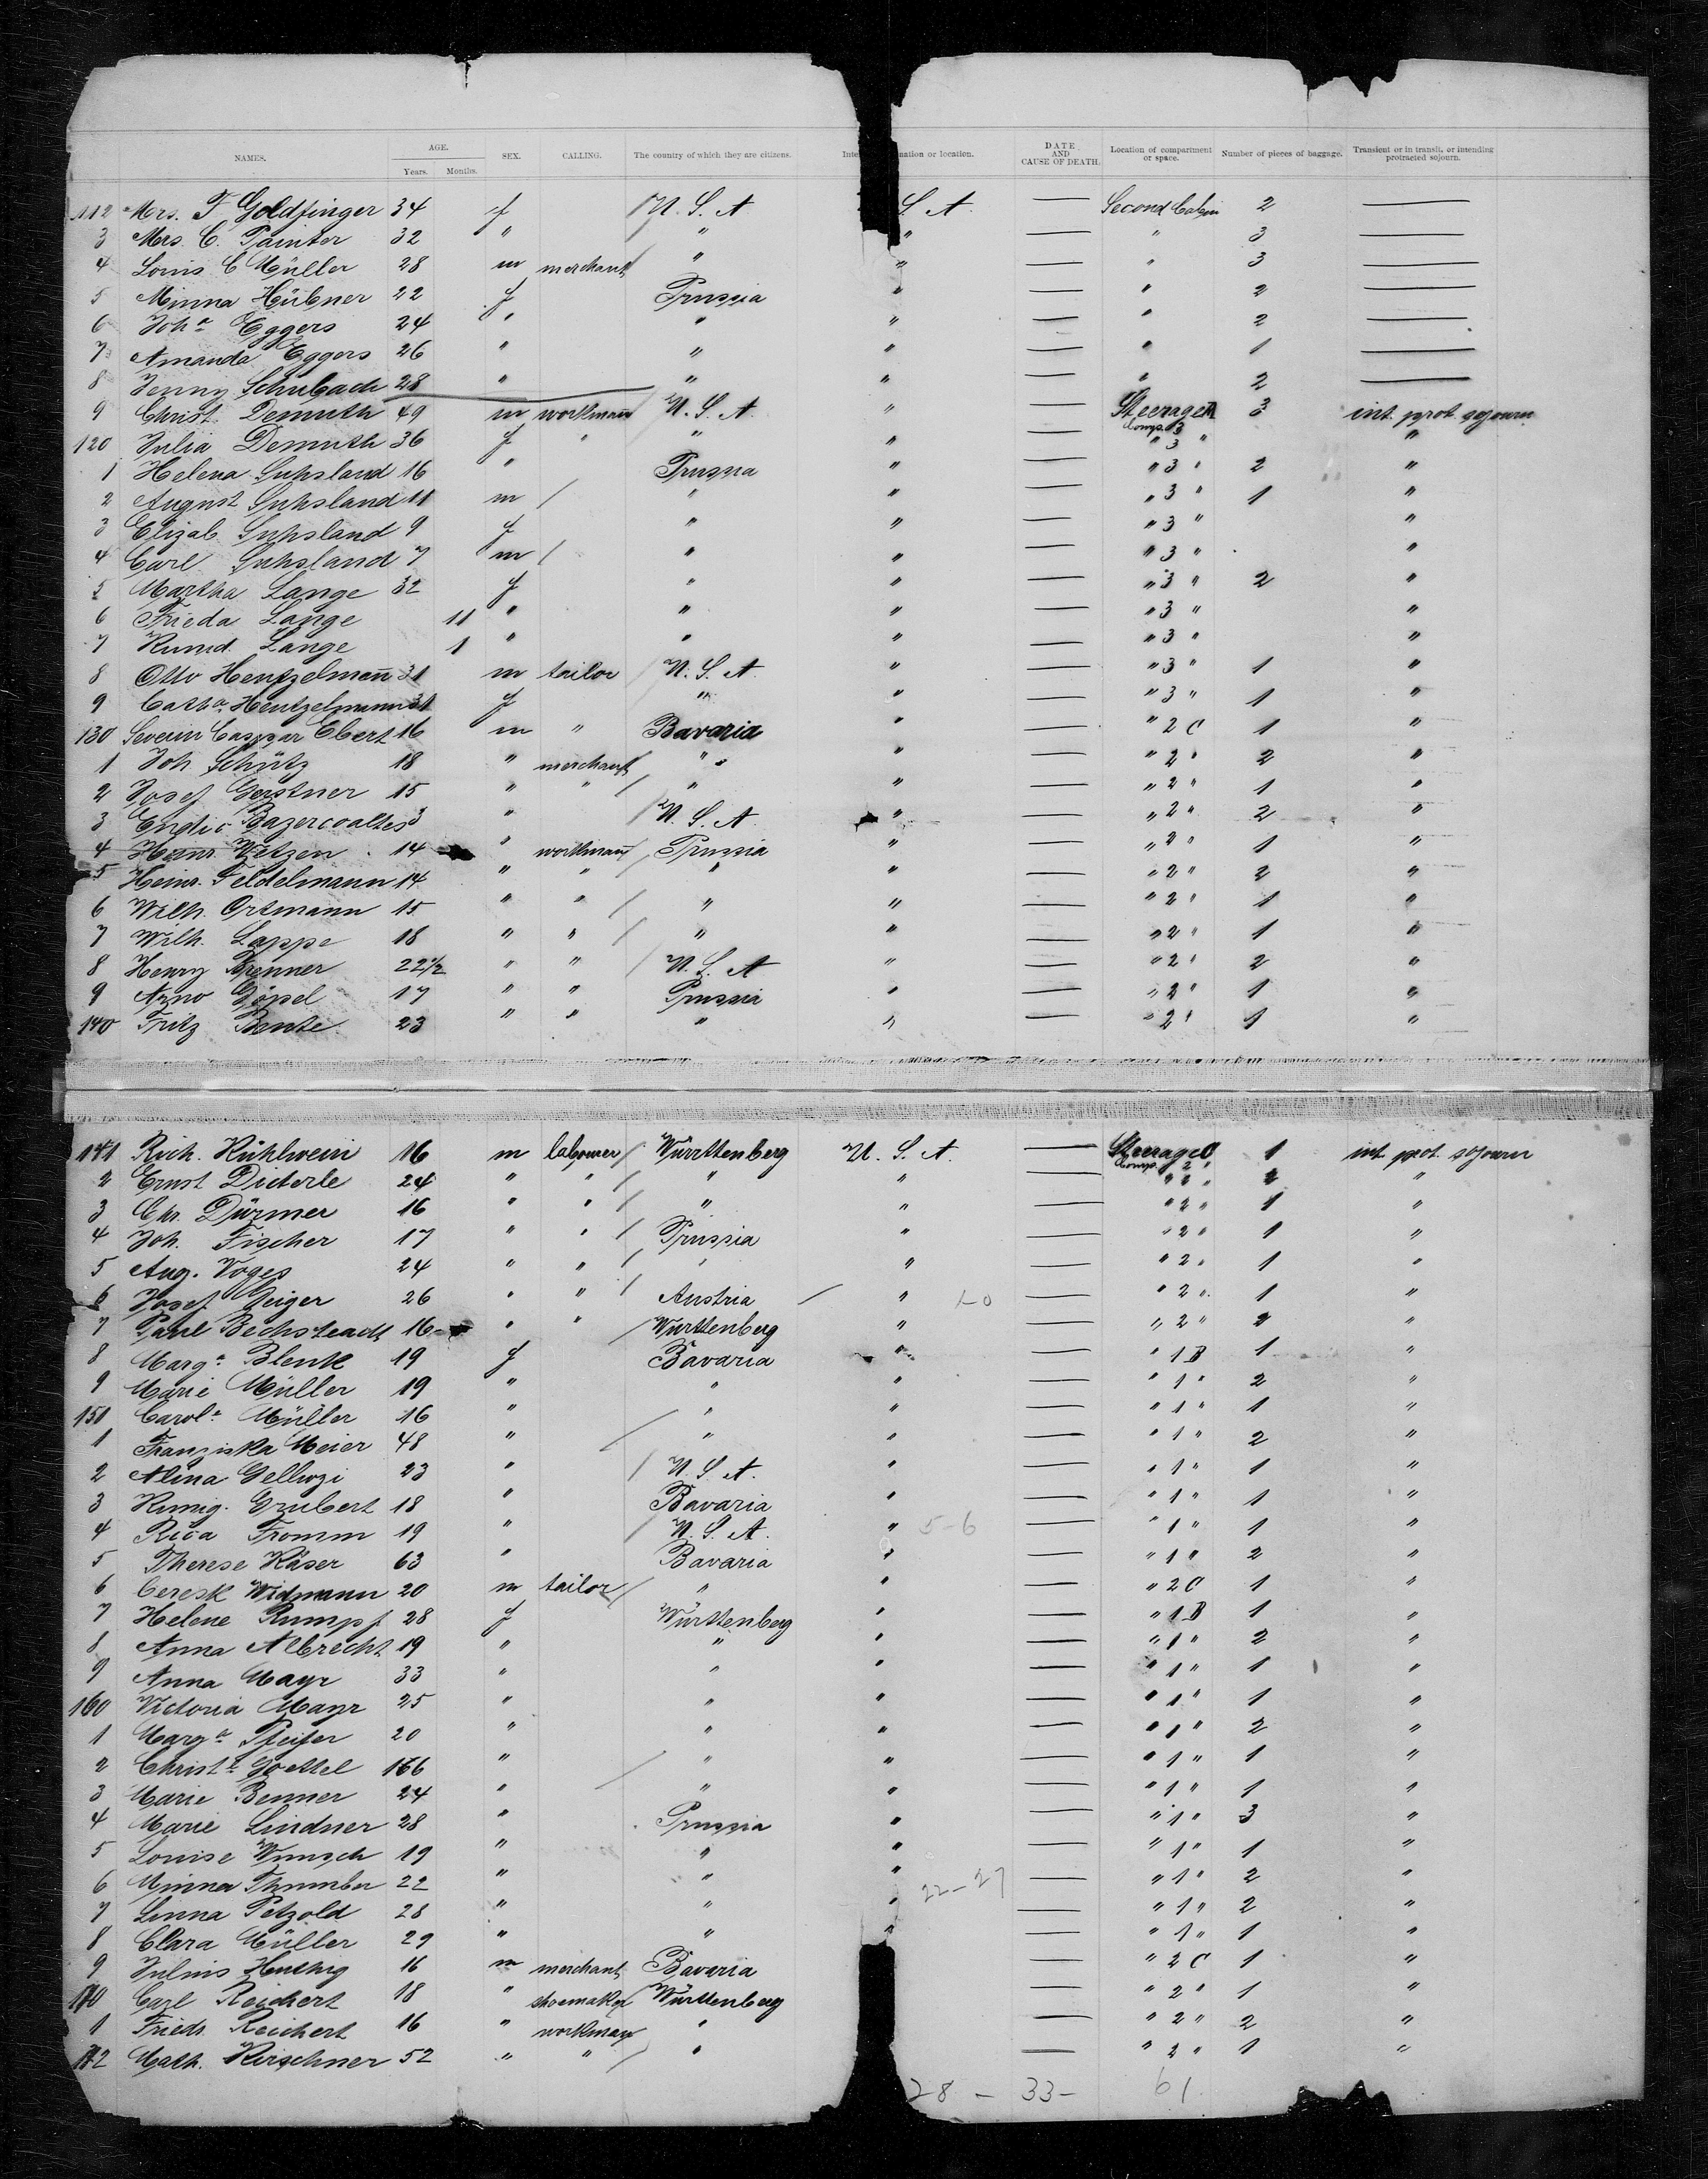 NAMES. AGE. Years. Months. SEX. CALLING. The country of which they are citizens. Inte nation or location. DATE AND CAUSE OF DEATH. Location of compartment or space. Number of pieces of baggage. Transient or in transit, or intending protracted sojourn.
112 Mrs. F Goldfinger 34 f / U. S. A S. A. — Second Cabin 2 —
3 Mrs. C. Painter 32 " / " " — " 3 —
4 Louis C Müller 28 m merchant / " " — " 3 —
5 Minna Hübner 22 f Prussia " — " 2 —
6 Joha Eggers 24 " " " — " 2 —
7 Amanda Eggers 26 " " " — " 1 —
8 Jenny Schubach 28 " " " — " 2 —
9 Christ. Demuth 49 m workmann / U. S. A. " — Steerage Comp. 3 3 int. prot sojourn
120 Julia Demuth 36 f " " " — " 3 " "
1 Helena Suhsland 16 " Prussia " — " 3 " 2 "
2 August Suhsland 11 m / " " — " 3 " 1 "
3 Elizab Suhsland 9 f " " — " 3 " "
4 Carl Suhsland 7 m / " " — " 3 " "
5 Martha Lange 32 f " " — " 3 " 2 "
6 Frieda Lange 11 " " " — " 3 " "
7 Lange 1 " " " — " 3 " "
8 Otto Hentzelmann 31 m tailor / U. S. A. " — " 3 " 1 "
9 Catha Hentzelmann 31 f " " — " 3 " 1 "
130 Severin Caspar Ebert 16 m " Bavaria " — " 2 C 1 "
1 Joh Schütz 18 " merchant " " — " 2 " 2 "
2 Josef Gerstner 15 " " / " " — " 2 " 1 "
3 3 " / U. S. A " — " 2 " 2 "
4 Heinr. Wetzen 14 " workmann / Prussia " — " 2 " 1 "
5 Heinr. Feldelmann 14 " " / " " — " 2 " 2 "
6 Wilh. Ortmann 15 " " / " " — " 2 " 1 "
7 Wilh. Lappe 18 " " / " " — " 2 " 1 "
8 Henry Brenner 22 1/2 " " / U. S. A " — " 2 " 2 "
9 Arno Göpel 17 " " Prussia " — " 2 " 1 "
140 Fritz Bente 23 " " " " — " 2 " 1 "
141 Rich. Kühlwein 16 m labourer / Würrttenberg U. S. A. — Steerage C Comp. 2 " 1 int. prot. sojourn
2 Ernst Dieterle 24 " " / " " — " 2 " 2 "
3 Chr. Dürmer 16 " " / " " — " 2 " 1 "
4 Joh. Fischer 17 " " / Prussia " — " 2 " 1 "
5 Aug. Voges 24 " " / " " — " 2 " 1 "
6 Josef Geiger 26 " " / Austria / " 1-0 — " 2 " 1 "
7 Paul Bechsteadt 16 " " / Wurttenberg " — " 2 " 2 "
8 Marga Blenk 19 f Bavaria " — " 1 B 1 "
9 Marie Müller 19 " " " — " 1 " 2 "
150 Carola Müller 16 " " " — " 1 " 1 "
1 Franziska Meier 48 " / " " — " 1 " 2 "
2 Alina 23 " / U. S. A. " — " 1 " 1 "
3 Kunig. Grubert 18 " Bavaria " — " 1 " 1 "
4 Rica Fromm 19 " / U. S. A. " 5-6 — " 1 " 1 "
5 Therese Käser 63 " Bavaria " — " 1 " 2 "
6 Widmann 20 m tailor / " " — " 2 C 1 "
7 Helene Rumpf 28 f Württenberg " — " 1 B 1 "
8 Anna Albrecht 19 " " " — " 1 " 2 "
9 Anna Mayr 33 " " " — " 1 " 1 "
160 Victoria Mayr 25 " " " — " 1 " 1 "
1 Marga Pfeifer 20 " " " — " 1 " 2 "
2 Christe Goettel 166 " / " " — " 1 " 1 "
3 Marie Benner 24 " " " — " 1 " 1 "
4 Marie Lindner 28 " Prussia " — " 1 " 3 "
5 Louise Wunsch 19 " " " — " 1 " 1 "
6 Minna 22 " " " 22-27 — " 1 " 2 "
7 Linna Petzold 28 " " " — " 1 " 2 "
8 Clara Müller 29 " " " — " 1 " 1 "
9 Julius Huthig 16 m merchant Bavaria — " 2 C 1 "
170 Carl Reichert 18 " shoemaker Württenberg — " 2 " 1 "
1 Friedr. Reichert 16 " workmann " — " 2 " 2 "
172 Math. Kirschner 52 " " / " — " 2 " 1 "
28 - 33 - 61